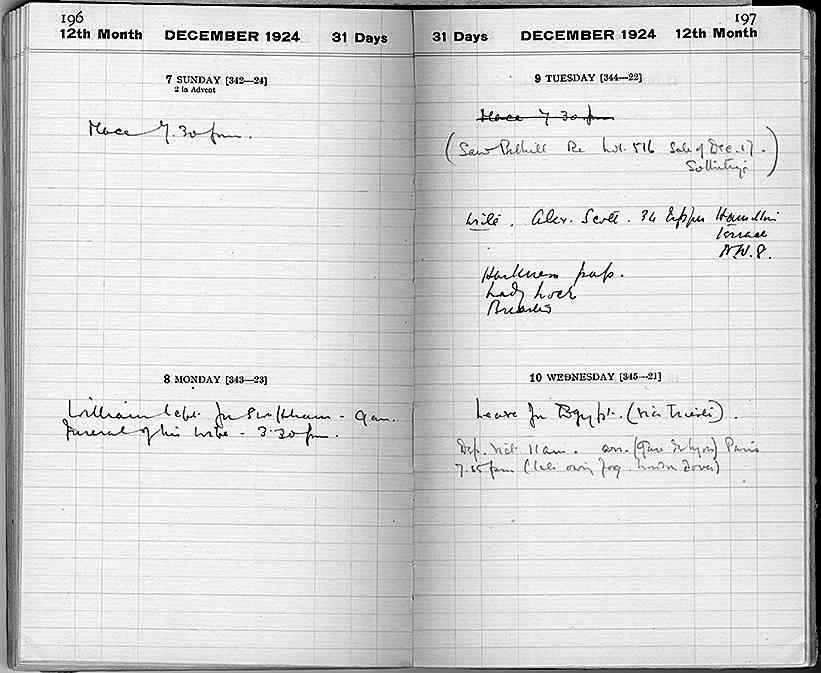 196
12th Month DECEMBER 1924 31 Days
7 SUNDAY [342—24]
2 in Advent
Mace 7.30 pm.
8 MONDAY [343—23]
William left for Swaffham - 9 am.
Funeral of his wife - 3.30 pm.
197
31 Days DECEMBER 1924 12th Month
9 TUESDAY [344—22]
Mace 7 30 pm
(Saw Re Lot. 516 Sale of Dec. 17.
Sotheby's)
Write. Alex. Scott. 34 Upper Hamilton
Terrace
N.W.8.
Harkness
Lady
10 WEDNESDAY [345—21]
Leave for Egypt. (via Trieste).
Dep. Vict. 11 am. arr. (Gare de Lyon) Paris
7.55 pm (late owing fog London Dover)